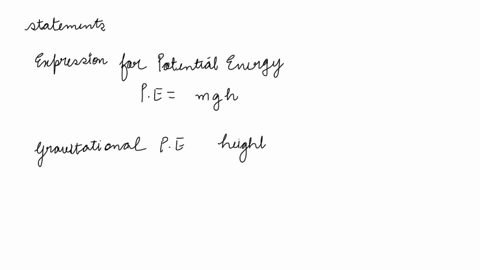 statements
Expression for Potential Energy
P.E = mgh
Gravitational P.E height